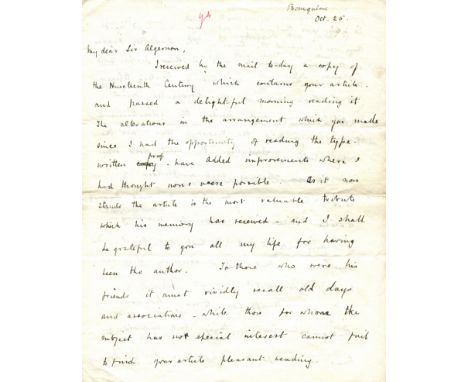 Bangalore
Oct. 25.
My dear Sir Algernon,
I received by the mail to-day a copy of
the Nineteenth Century which contains your article
and passed a delightful morning reading it
The alterations in the arrangement which you made
since I had the opportunity of reading the type-
written proof - have added improvements where I
had thought none were possible. As it now
stands the article is the most valuable tribute
which his memory has received - and I shall
be grateful to you all my life for having
been the author. To those who were his
friends it must vividly recall old days
and associations - while those for whom the
subject has not special interest cannot fail
to find your article pleasant reading.